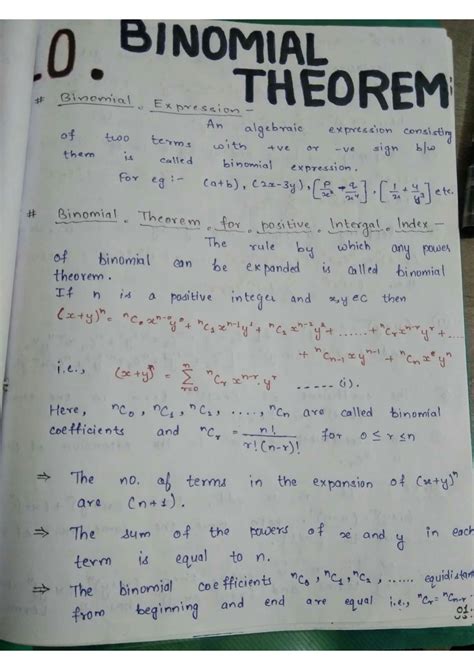 10. BINOMIAL
THEOREM
# Binomial Expression -
An algebraic expression consisting
of two terms with +ve or -ve sign b/w
them is called binomial expression.
For eg :- (a+b), (2x-3y), [p/x² + q/x⁴], [1/x + 4/y³] etc.
# Binomial Theorem for positive Intergal Index -
The rule by which any power
of binomial can be expanded is called binomial
theorem.
If n is a positive integer and x,y ∈ C then
(x+y)ⁿ = ⁿC₀ xⁿ⁻⁰y⁰ + ⁿC₁ xⁿ⁻¹y¹ + ⁿC₂ xⁿ⁻²y² + ...... + ⁿCᵣ xⁿ⁻ʳyʳ + ....
+ ⁿCₙ₋₁ x yⁿ⁻¹ + ⁿCₙ x⁰yⁿ
i.e., (x+y)ⁿ = Σ_{r=0}^{n} ⁿCᵣ xⁿ⁻ʳ.yʳ ----- (i).
Here, ⁿC₀, ⁿC₁, ⁿC₂, ...., ⁿCₙ are called binomial
coefficients and ⁿCᵣ = n!/r!(n-r)! for 0 ≤ r ≤ n
⇒ The no. of terms in the expansion of (x+y)ⁿ
are (n+1).
⇒ The sum of the powers of x and y in each
term is equal to n.
⇒ The binomial coefficients ⁿC₀, ⁿC₁, ⁿC₂, ...... equidistan
from beginning and end are equal i.e., ⁿCᵣ = ⁿCₙ₋ᵣ
01